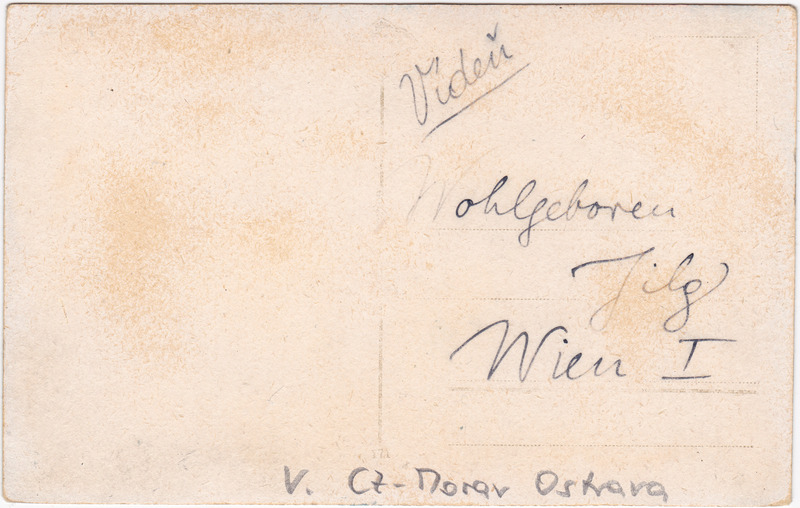 Vídeň
Wohlgeboren
Jilg
Wien I
V. CZ-Morav Ostrava